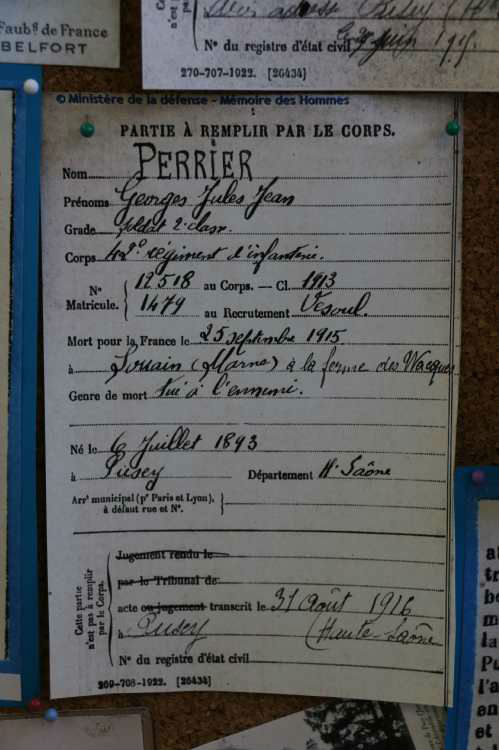 Faubg de France
BELFORT
N° du registre d'état civil
270-707-1022. [26434]
© Ministère de la défense - Mémoire des Hommes
PARTIE À REMPLIR PAR LE CORPS.
Nom PERRIER
Prénoms Georges Jules Jean
Grade soldat 2e classe
Corps 42e régiment d'infanterie.
N° Matricule. { 12518 au Corps. — Cl. 1913
1479 au Recrutement Vesoul.
Mort pour la France le 25 septembre 1915.
à Souain (Marne) à la ferme des Wacques
Genre de mort Tué à l'ennemi.
Né le 6 Juillet 1893
à Pusey Département Hte Saône
Arrt municipal (pr Paris et Lyon), à défaut rue et N°.
Cette partie n'est pas à remplir par le Corps.
Jugement rendu le
par le Tribunal de
acte ou jugement transcrit le 31 Août 1916
à Pusey (Haute-Saône
N° du registre d'état civil
269-708-1922. [26434]